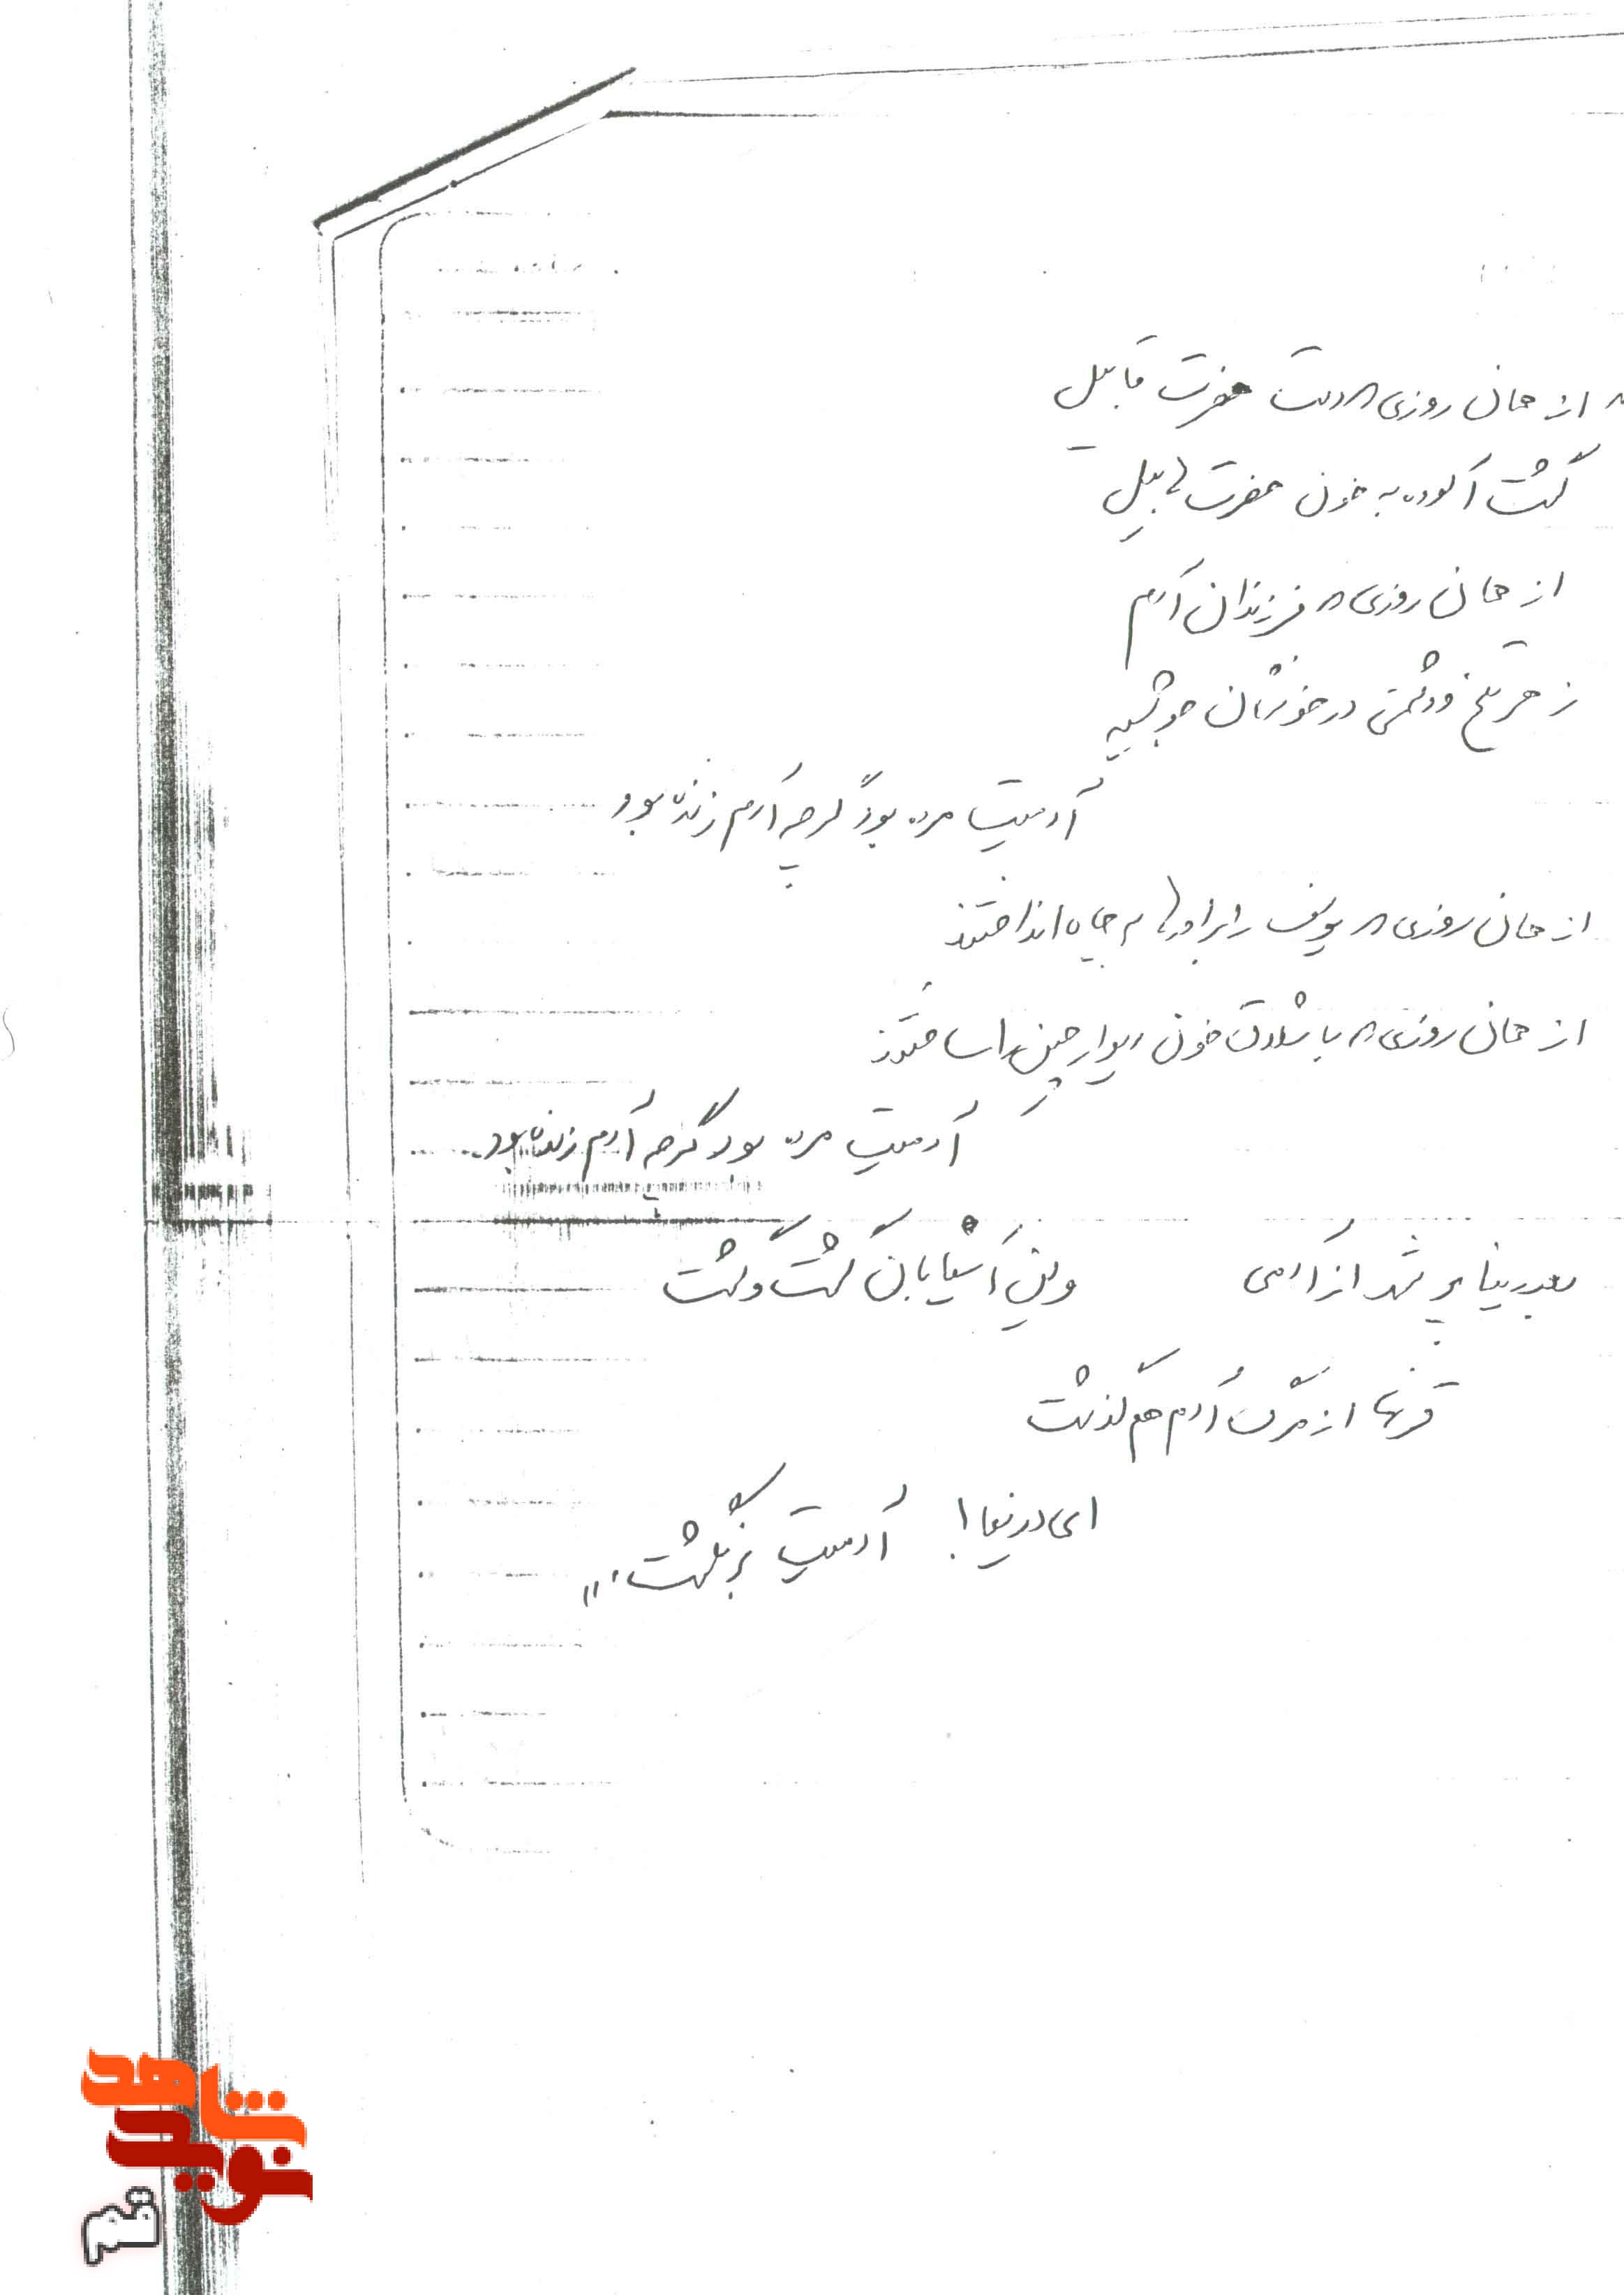 " از همان روزی که دست حضرت قابیل
گشت آلوده به خون حضرت هابیل
از همان روزی که فرزندان آدم
زهر تلخ دشمنی در خونشان جوشید
آدمیت مرده بود گرچه آدم زنده بود
از همان روزی که یوسف را برادرها به چاه انداختند
از همان روزی که با شلاق خون دیوار چین را ساختند
آدمیت مرده بود گرچه آدم زنده بود
بعد دنیا پر شد از آدمی وین آسیابان گشت و گشت
قرنها از مرگ آدم هم گذشت
ای دریغا! آدمیت برنگشت. "
نوید شاهد
قم